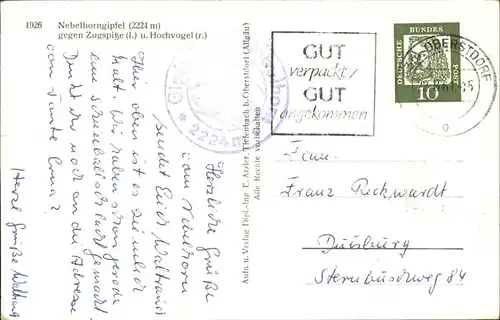 1926
Nebelhorngipfel (2224 m)
gegen Zugspitze (l.) u. Hochvogel (r.)
2224 m
Herzliche Grüße
vom Nebelhorn
sendet Euch Waltraud
Hier oben ist es ziemlich
kalt. Wir haben schon gerade
eine Schneeballschlacht gemacht.
Denkt Ihr noch an die Adresse
von Tante Erna?
Herzl. Grüße Waltraud
Aufn. u. Verlag Dipl.-Ing. E. Atzler, Tiefenbach b. Oberstdorf (Allgäu)
Alle Rechte vorbehalten
GUT
verpackt /
GUT
angekommen
OBERSTDORF
DEUTSCHE
BUNDES
POST
10
Fam.
Franz Rickwardt
Duisburg
Sternbuschweg 84